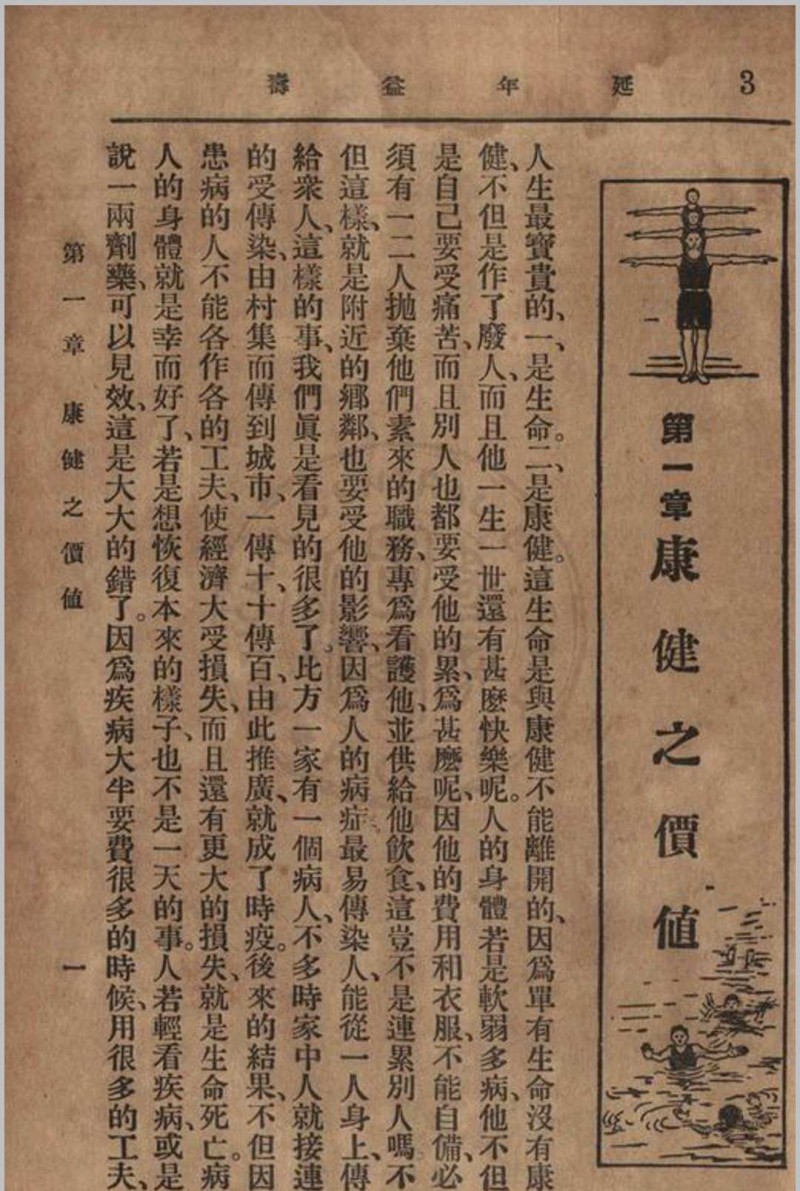 延年益壽
3
第一章 康健之價値
人生最寶貴的、一、是生命。二、是康健。這生命是與康健不能離開的、因爲單有生命沒有康
健、不但是作了廢人、而且他一生一世還有甚麽快樂呢。人的身體若是軟弱多病、他不但
是自己要受痛苦、而且別人也都要受他的累、爲甚麽呢、因他的費用和衣服、不能自備、必
須有一二人抛棄他們素來的職務、專爲看護他、並供給他飲食、這豈不是連累別人嗎。不
但這樣、就是附近的鄉鄰、也要受他的影響、因爲人的病症。最易傳染人、能從一人身上、傳
給衆人、這樣的事、我們眞是看見的很多了。比方一家有一個病人、不多時家中人就接連
的受傳染、由村集而傳到城市、一傳十、十傳百、由此推廣、就成了時疫。後來的結果、不但因
患病的人不能各作各的工夫、使經濟大受損失、而且還有更大的損失、就是生命死亡。病
人的身體就是幸而好了、若是想恢復本來的樣子、也不是一天的事。人若輕看疾病、或是
說一兩劑藥、可以見效、這是大大的錯了。因爲疾病大半要費很多的時候、用很多的工夫、
第一章 康健之價値
一